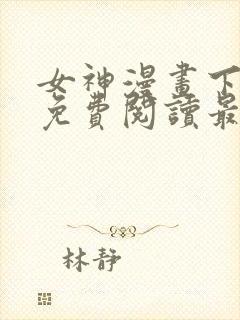 女神漫畫下
免費閱讀最
林靜